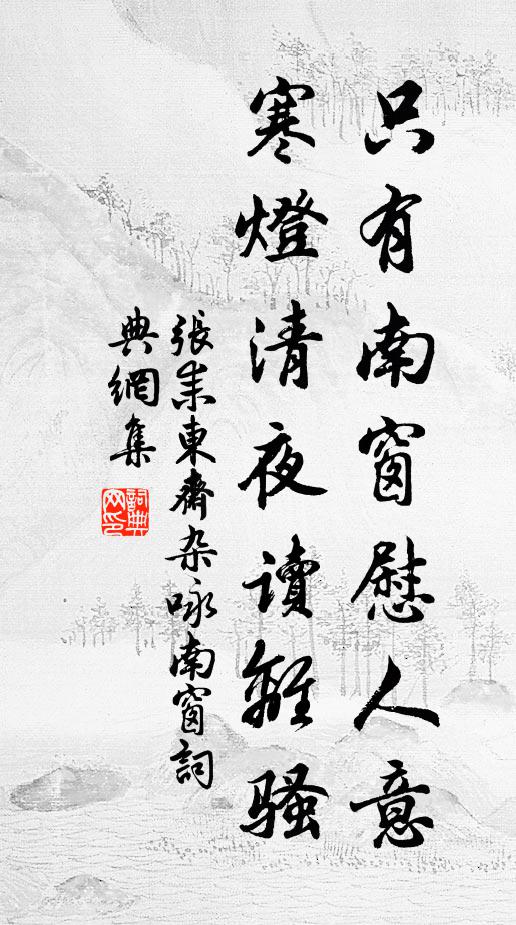 只有南窗慰人意
寒燈清夜讀離騷
張耒東齋杂咏南窗詞
典網集
詞典
网印